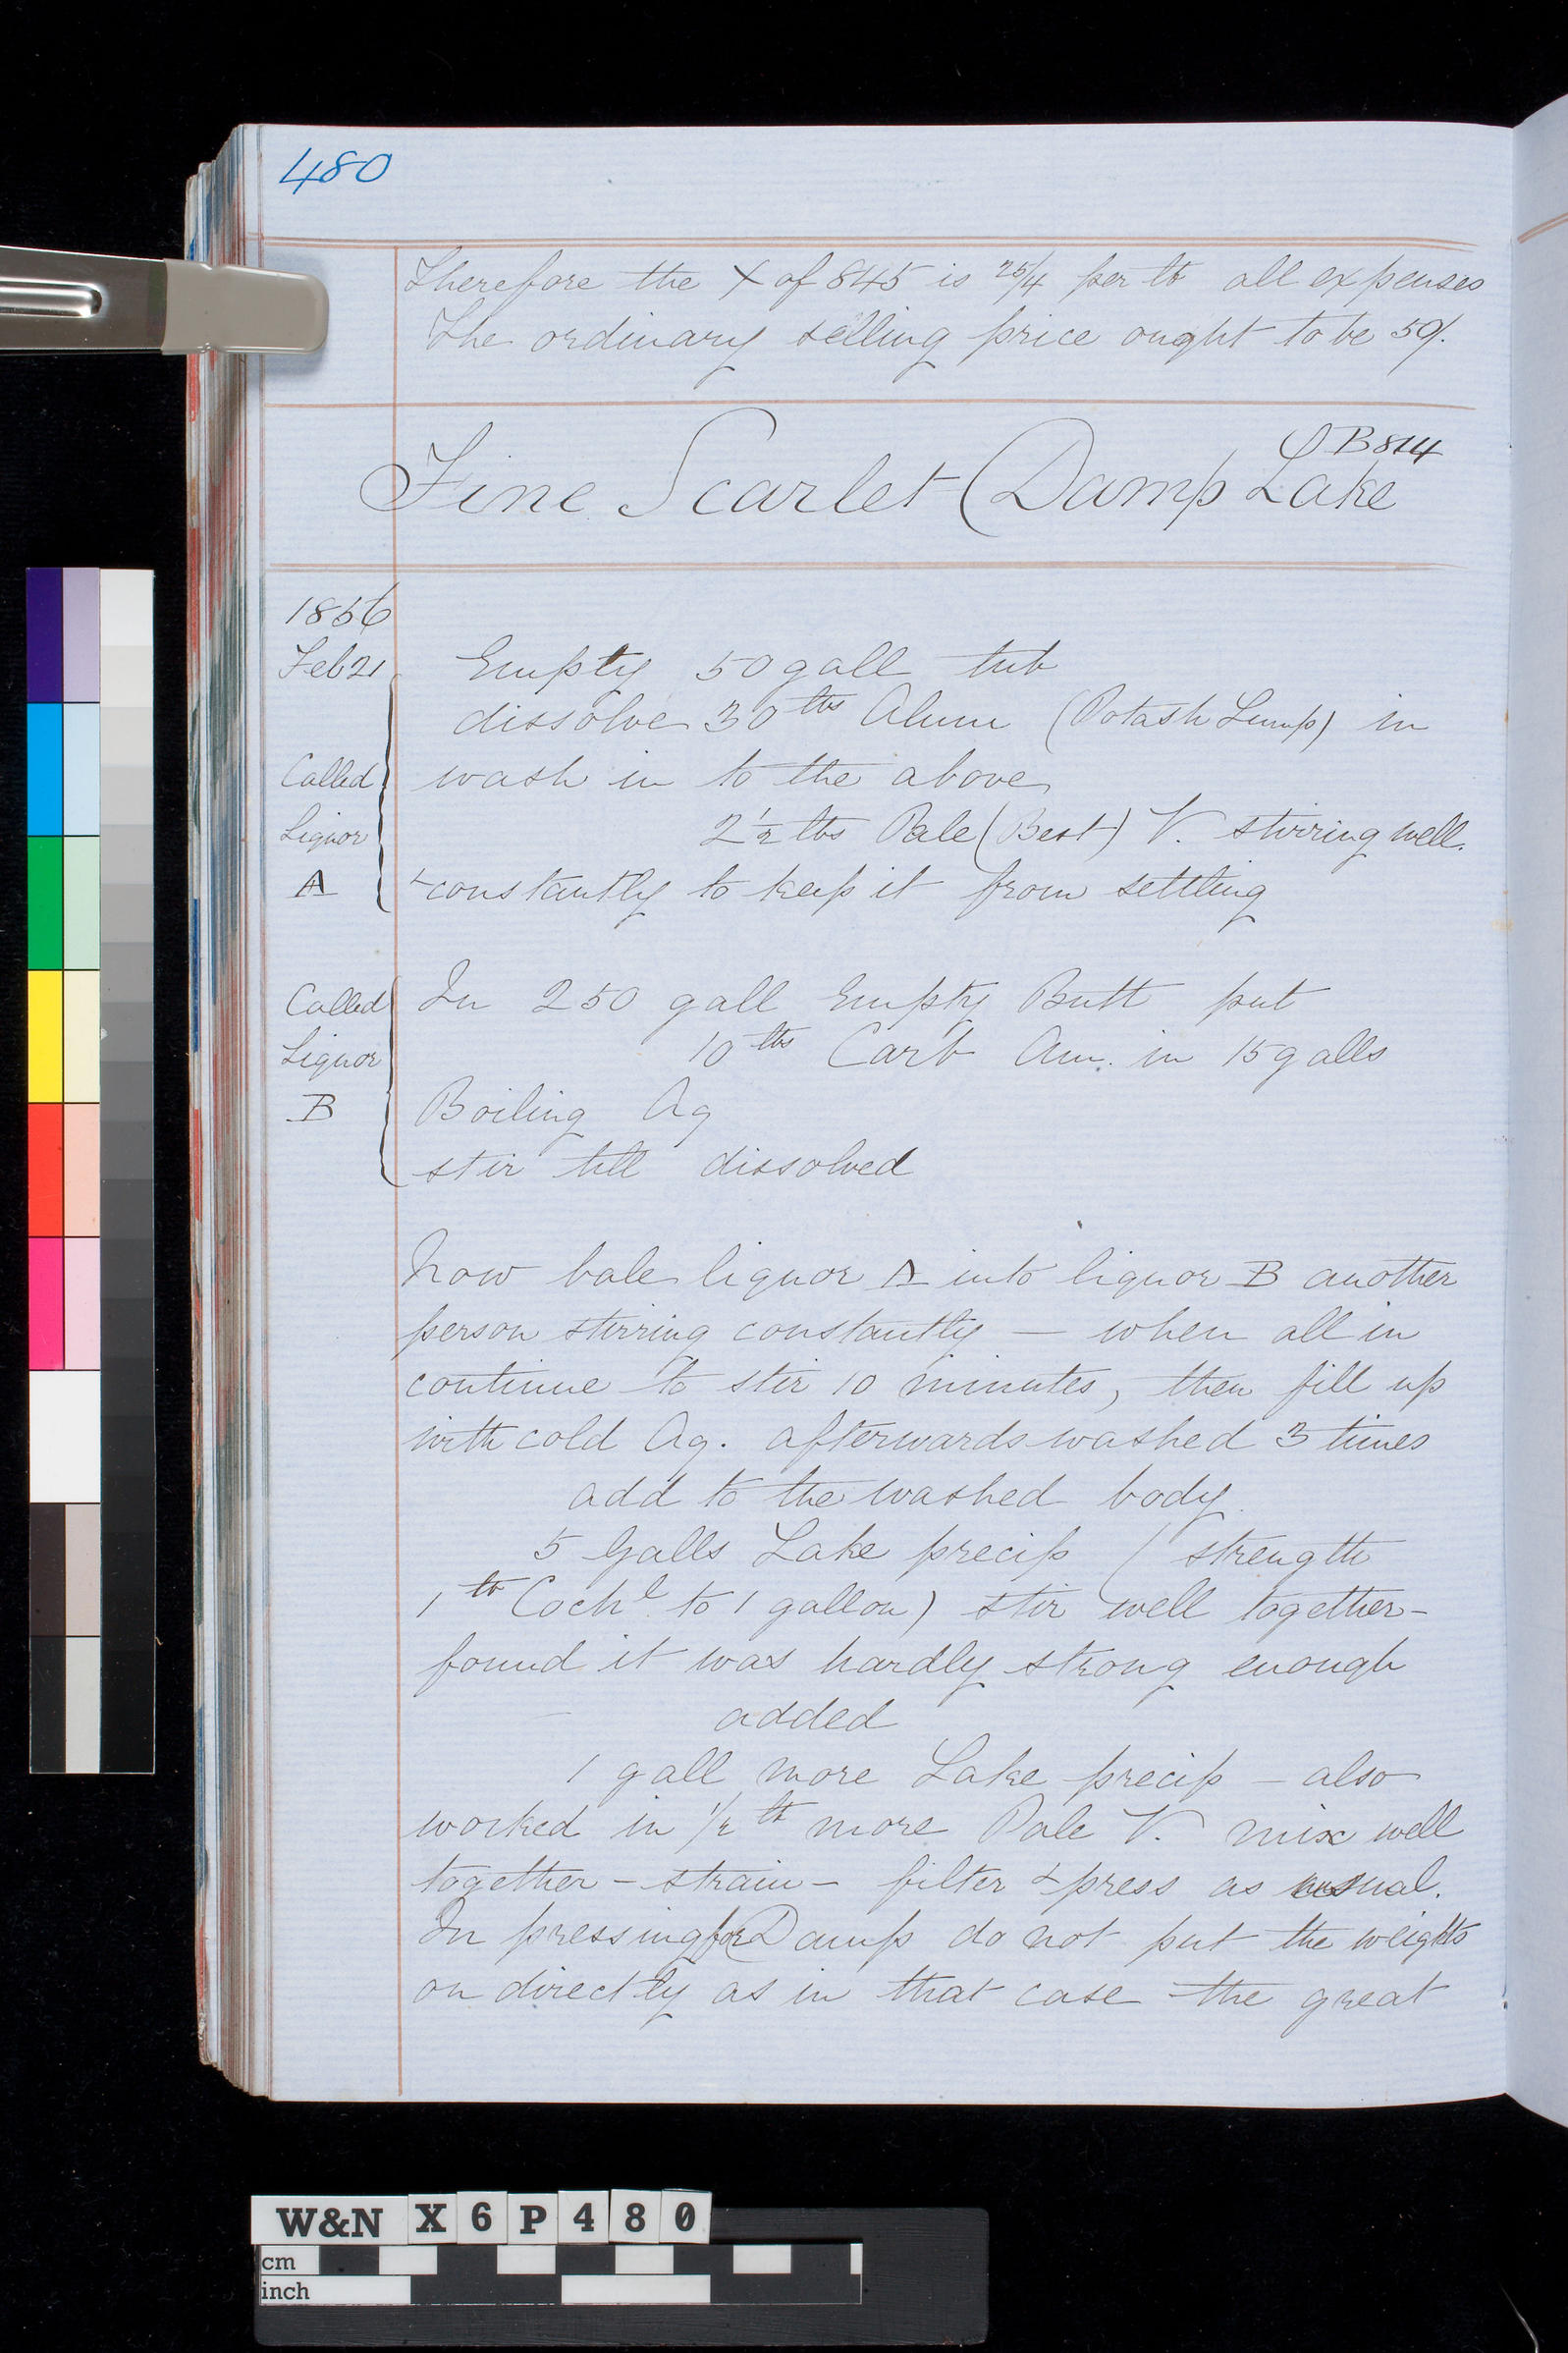 480
Therefore the X of 845 is 25/4 per lb all expenses
The ordinary selling price ought to be 50/.
B814
Fine Scarlet (Damp Lake
1856
Feb 21 Empty 50 gall tub
dissolve 30 lbs Alum (Potash Lump) in
Called wash in to the above
Liquor 2 1/2 lbs Pale (Best) V. stirring well.
A & constantly to keep it from settling
Called In 250 gall Empty Butt put
Liquor 10 lbs Carb Am. in 15 galls
B Boiling Aq
stir till dissolved
Now bale liquor A into liquor B another
person stirring constantly — when all in
continue to stir 10 minutes, then fill up
with cold Aq. afterwards washed 3 times
add to the washed body
5 Galls Lake precip (strength
1 lb Cochl to 1 gallon) stir well together -
found it was hardly strong enough
added
1 gall more Lake precip - also
worked in 1/2 lb more Pale V. mix well
together - strain - filter & press as usual.
In pressing for Damp do not put the weights
on directly as in that case the great
W&N X6P480
cm
inch